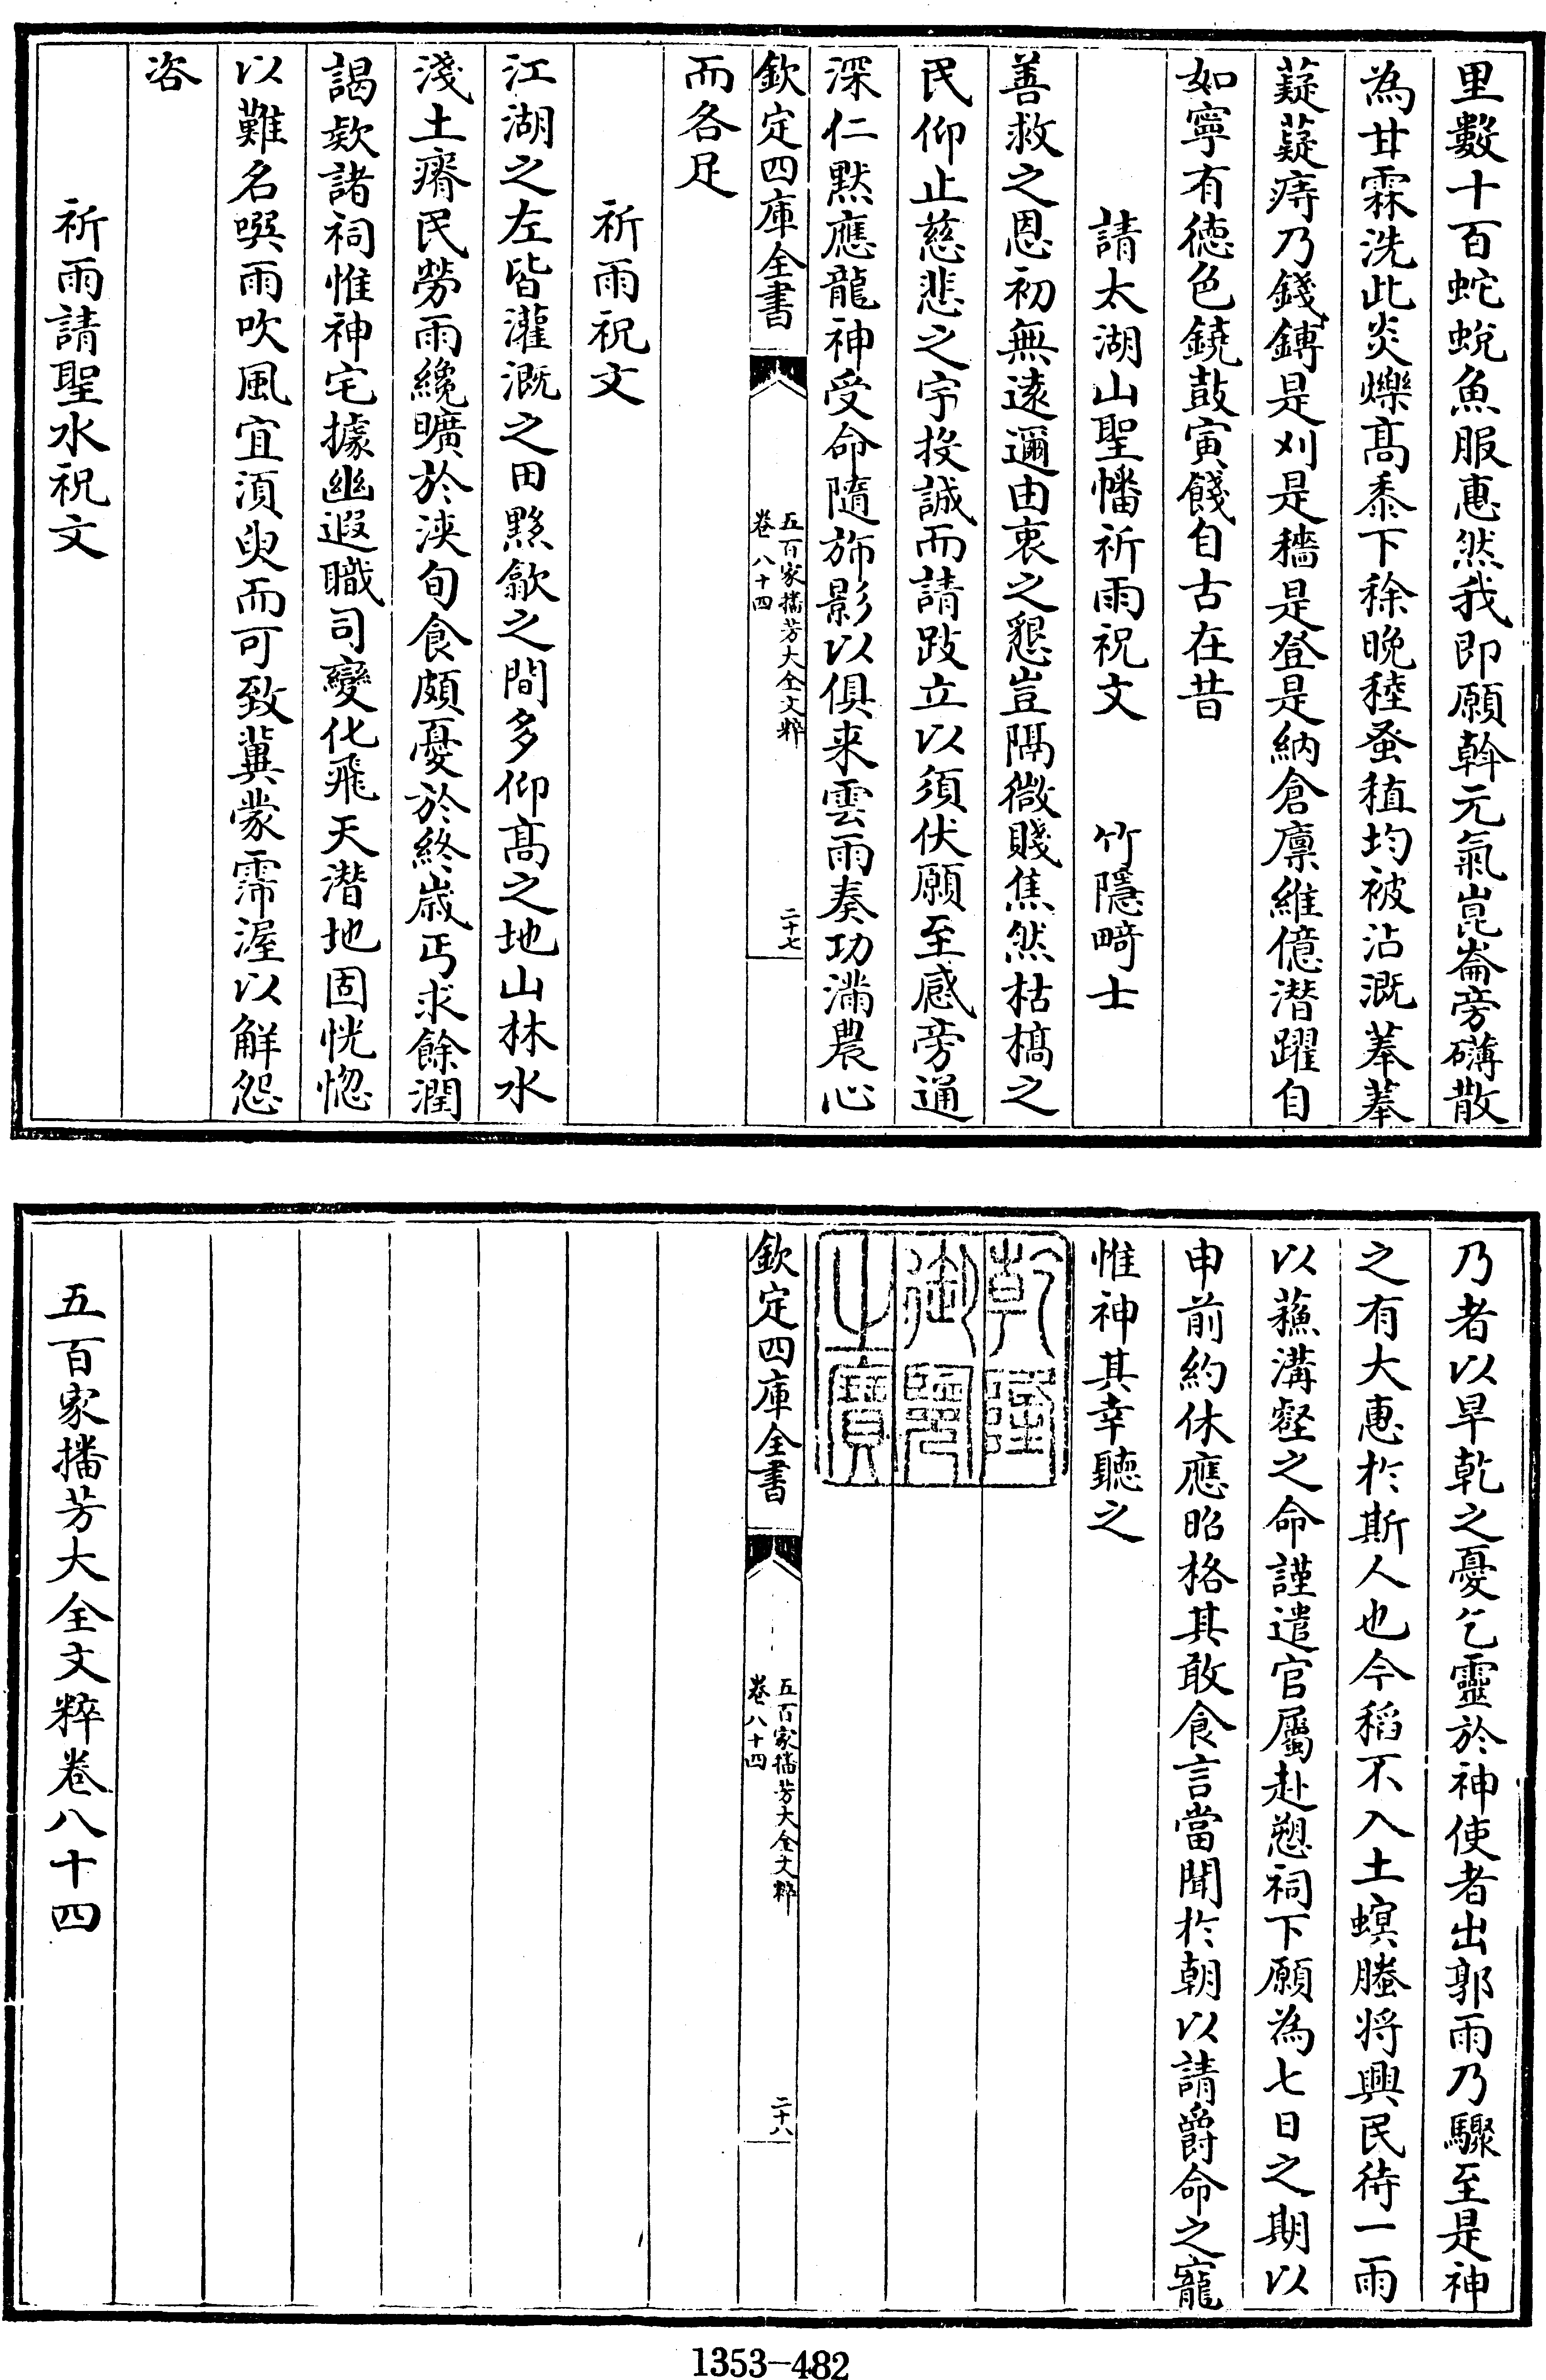 里數十百蛇蛻魚服惠然我即願斡元氣崑崙旁礴散
為甘霖洗此炎爍高黍下稌晚稑蚤稙均被沾溉菶菶
薿薿庤乃錢鎛是刈是穡是登是納倉廪維億潛躍自
如寧有徳色鐃鼓寅餞自古在昔
請太湖山聖幡祈雨祝文 竹隱畸士
善救之恩初無逺邇由衷之懇豈隔微賤焦然枯槁之
民仰止慈悲之宇投誠而請跂立以須伏願至感旁通
深仁默應龍神受命隨斾影以俱来雲雨奏功滿農心
欽定四庫全書
五百家播芳大全文粹
卷八十四
二十七
而各足
祈雨祝文
江湖之左皆灌溉之田黟歙之間多仰髙之地山林水
淺土瘠民勞雨纔曠於浹旬食頗憂於終歲丐求餘潤
謁欵諸祠惟神宅據幽遐職司變化飛天潛地固恍惚
以難名噀雨吹風宜湏臾而可致冀蒙霈渥以解怨
咨
祈雨請聖水祝文
乃者以旱乾之憂乞靈於神使者出郭雨乃驟至是神
之有大惠於斯人也今稻不入土螟螣将興民待一雨
以蘓溝壑之命謹遣官屬赴愬祠下願為七日之期以
申前約休應昭格其敢食言當聞於朝以請爵命之寵
惟神其幸聽之
乾隆
御覽
之寶
欽定四庫全書
五百家播芳大全文粹
卷八十四
二十八
五百家播芳大全文粹卷八十四
1353-482